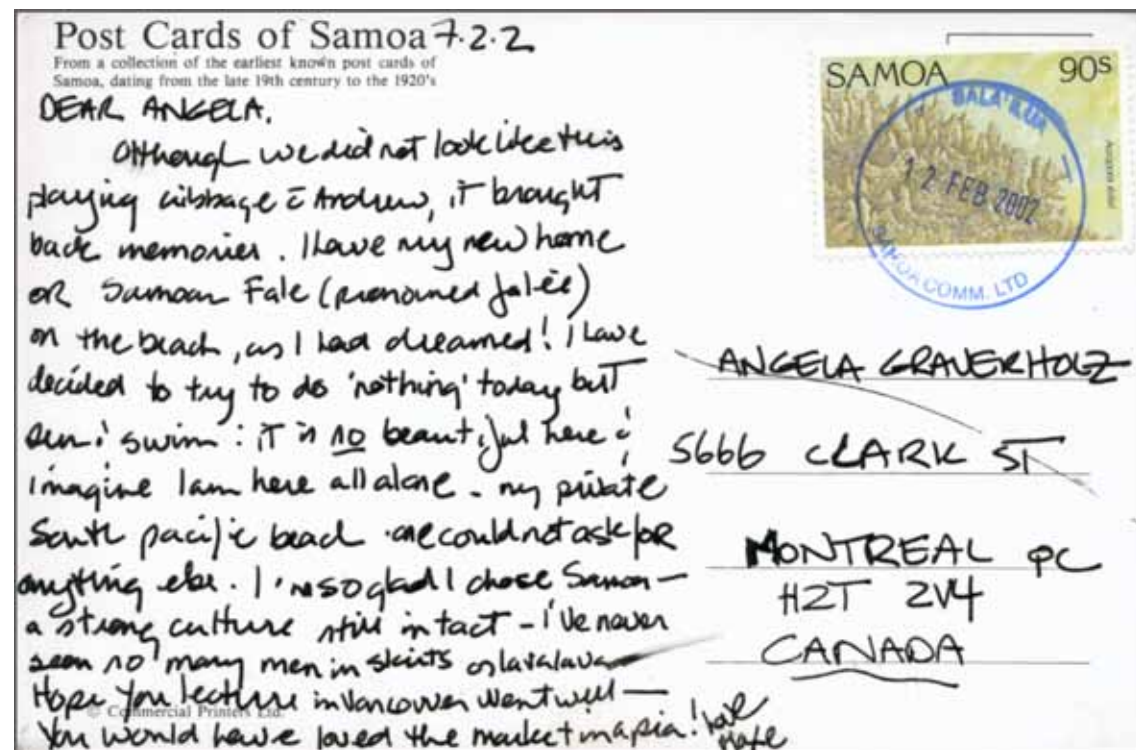 Post Cards of Samoa 7.2.2
From a collection of the earliest known post cards of
Samoa, dating from the late 19th century to the 1920's
DEAR ANGELA,
Although we did not look like this
playing cribbage c̄ Andrew, it brought
back memories. I love my new home
or Samoan Fale (pronounced falée)
on the beach, as I had dreamed! I have
decided to try to do 'nothing' today but
sun & swim: it is so beautiful here &
imagine I am here all alone - my private
South pacific beach. one could not ask for
anything else. I'm so glad I chose Samoa—
a strong culture still intact - I've never
seen so many men in skirts or lavalava
Hope you lecture in Vancouver went well —
© Commercial Printers Ltd.
You would have loved the market in apia! love
SAMOA 90s
12 FEB 2002
SAMOA COMM. LTD
ANGELA GRAUERHOLZ
5666 CLARK ST
MONTREAL PC
H2T 2V4
CANADA